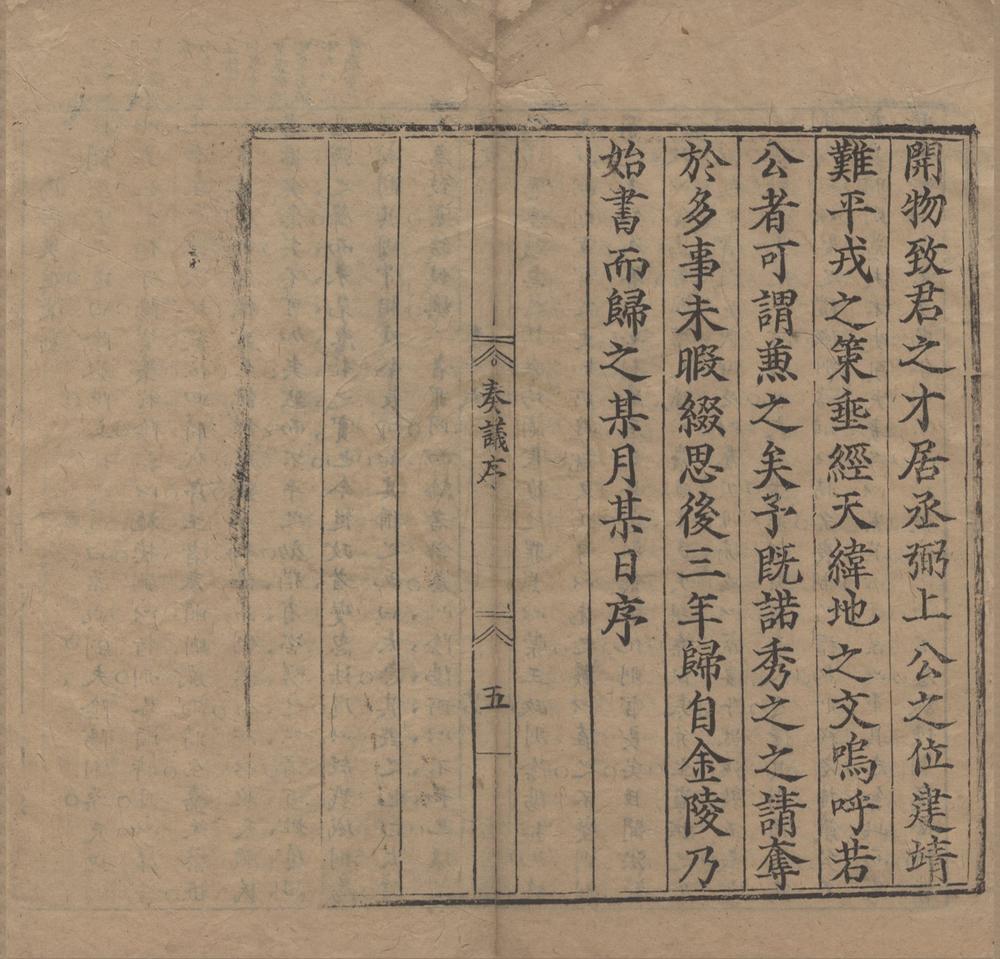 開物致君之才居丞弼上公之位建靖
難平戎之策垂經天緯地之文嗚呼若
公者可謂兼之矣予既諾秀之之請奪
於多事未暇綴思後三年歸自金陵乃
始書而歸之某月某日序
奏議序
五